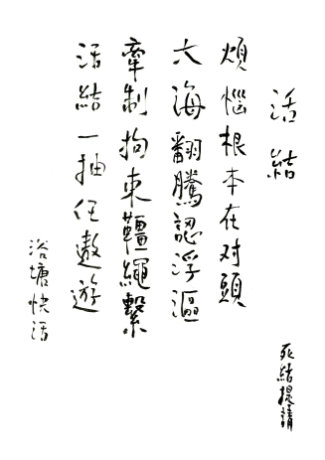 活結
煩惱根本在对頭
大海翻騰認浮漚
牽制拘束韁繩繫
活結一抽任遨遊
浴塘快活
死結提請